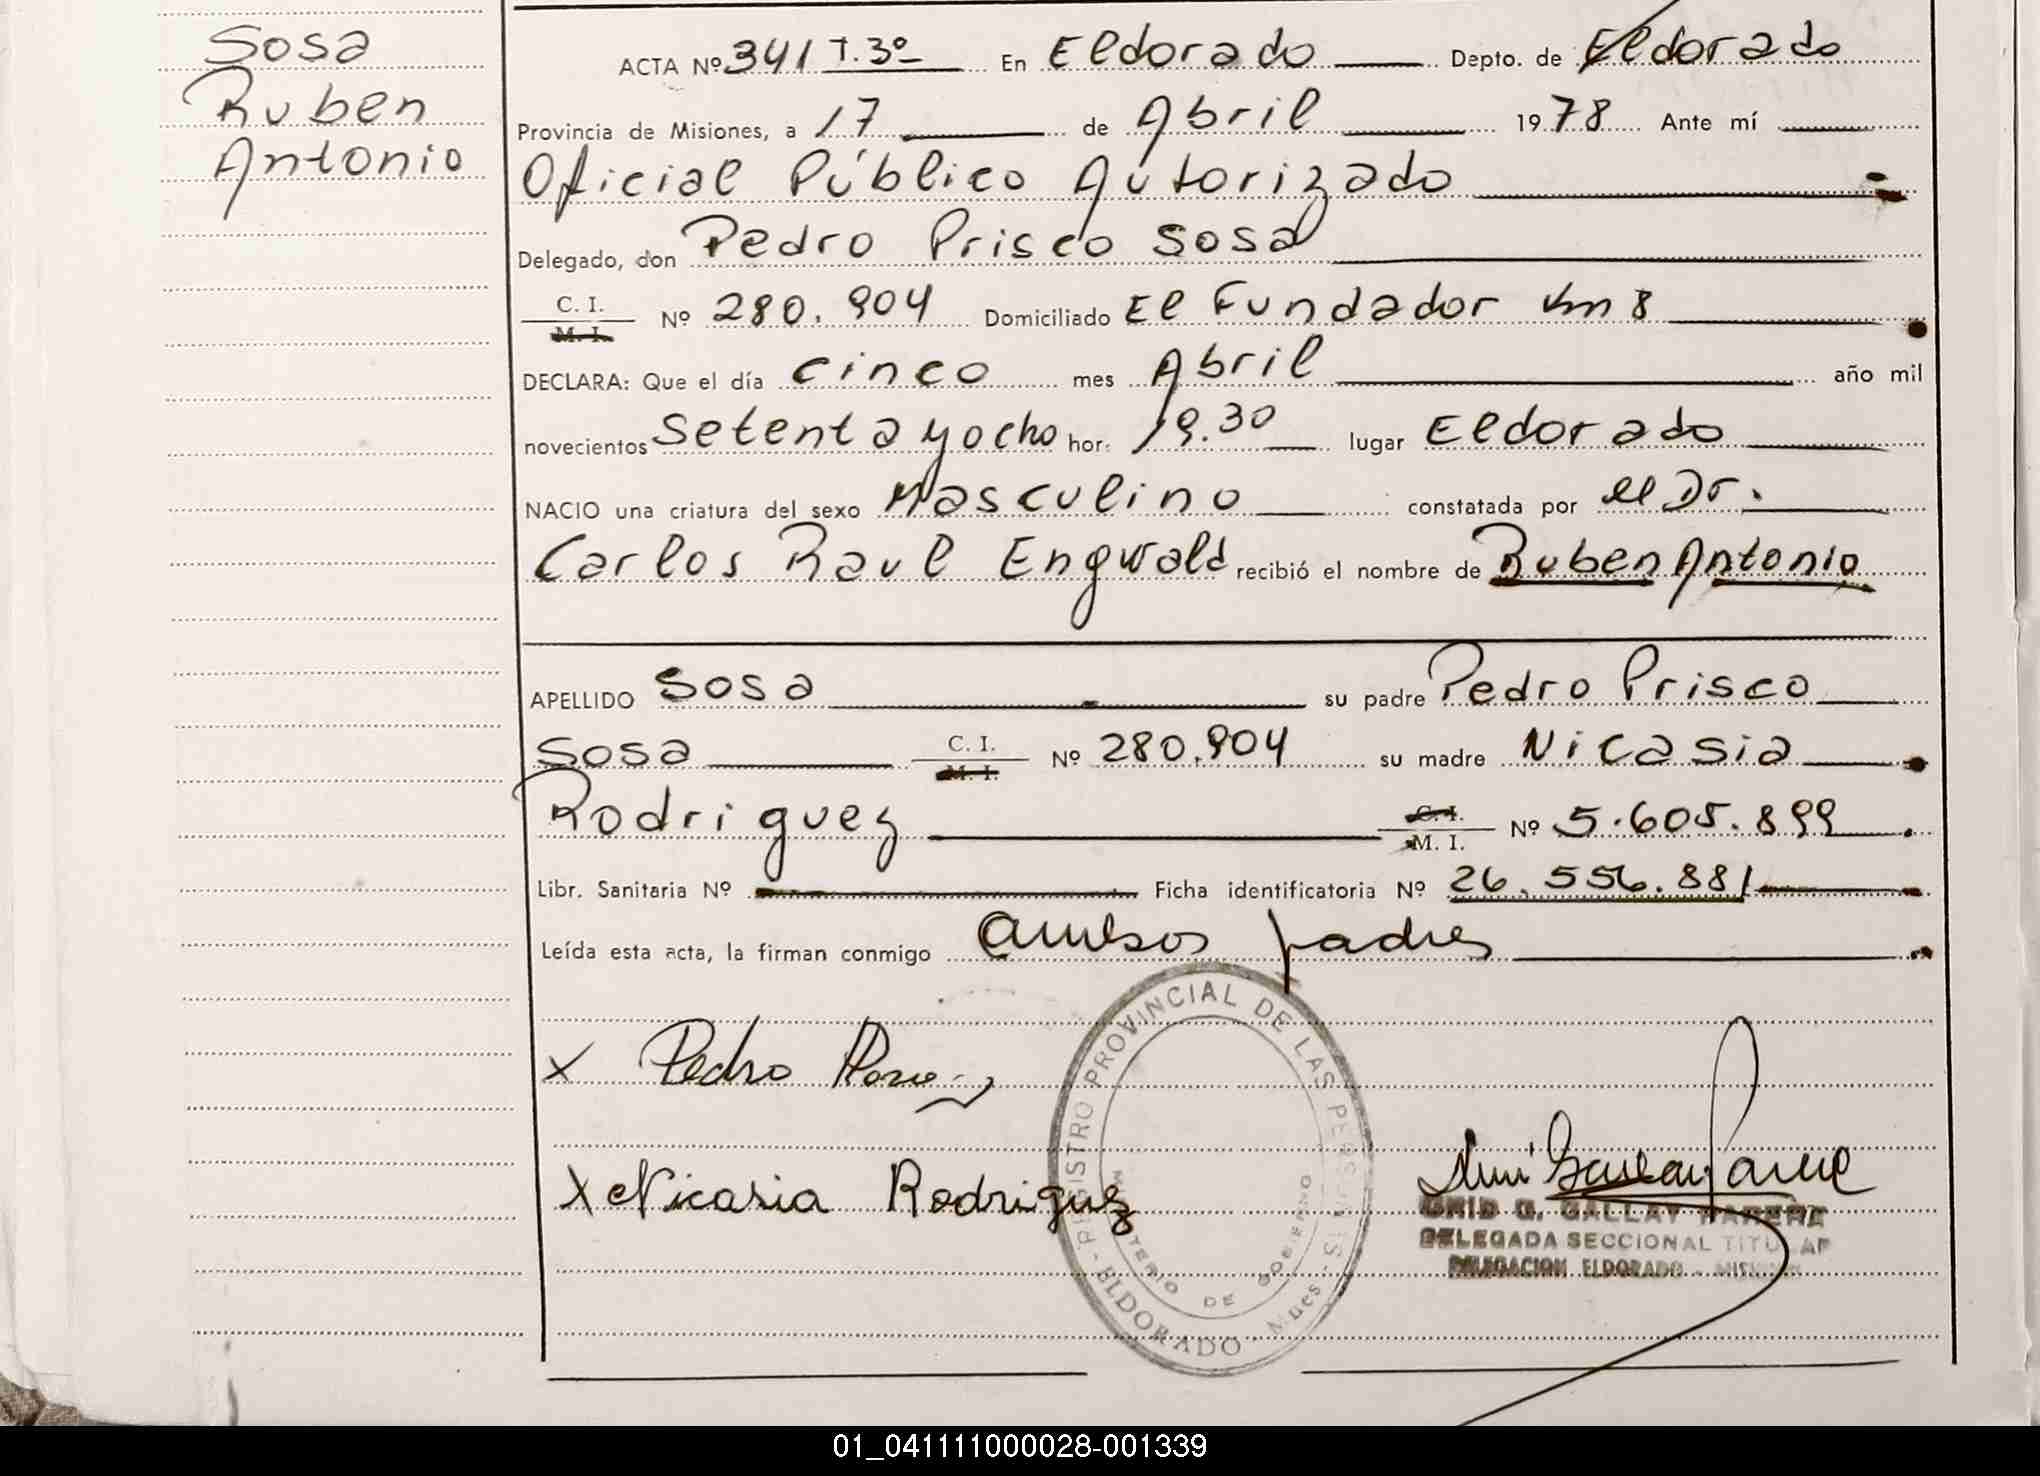 Sosa
Ruben
Antonio
ACTA Nº 341 T.3º En Eldorado Depto. de Eldorado
Provincia de Misiones, a 17 de Abril 1978 Ante mí
Oficial Público Autorizado
Delegado, don Pedro Prisco Sosa
C. I.
M. I.
Nº 280.904 Domiciliado El Fundador Km 8
DECLARA: Que el día cinco mes Abril año mil
novecientos Setenta y ocho hor: 19.30 lugar Eldorado
NACIO una criatura del sexo Masculino constatada por el Dr.
Carlos Raul Engwald recibió el nombre de Ruben Antonio
APELLIDO Sosa su padre Pedro Prisco
Sosa C. I. M. I. Nº 280.904 su madre Nicasia
Rodriguez C. I. M. I. Nº 5.605.899
Libr. Sanitaria Nº Ficha identificatoria Nº 26.556.881
Leída esta acta, la firman conmigo ambos padres
REGISTRO PROVINCIAL DE LAS PERSONAS
MINISTERIO DE GOBIERNO
ELDORADO - Mnes
X Pedro
X Nicasia Rodriguez
G. GALLAY PARERE
DELEGADA SECCIONAL TITULAR
DELEGACION ELDORADO - MISIONES
01_041111000028-001339